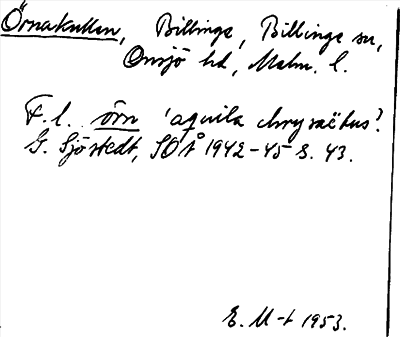 Örnakullen, Billinge, Billinge sn,
Onsjö hd, Malm. l.
F. l. örn 'aquila chrysaëtus'?
G. Sjöstedt, SOÅ 1942-45 s. 43.
E. M-t 1953.